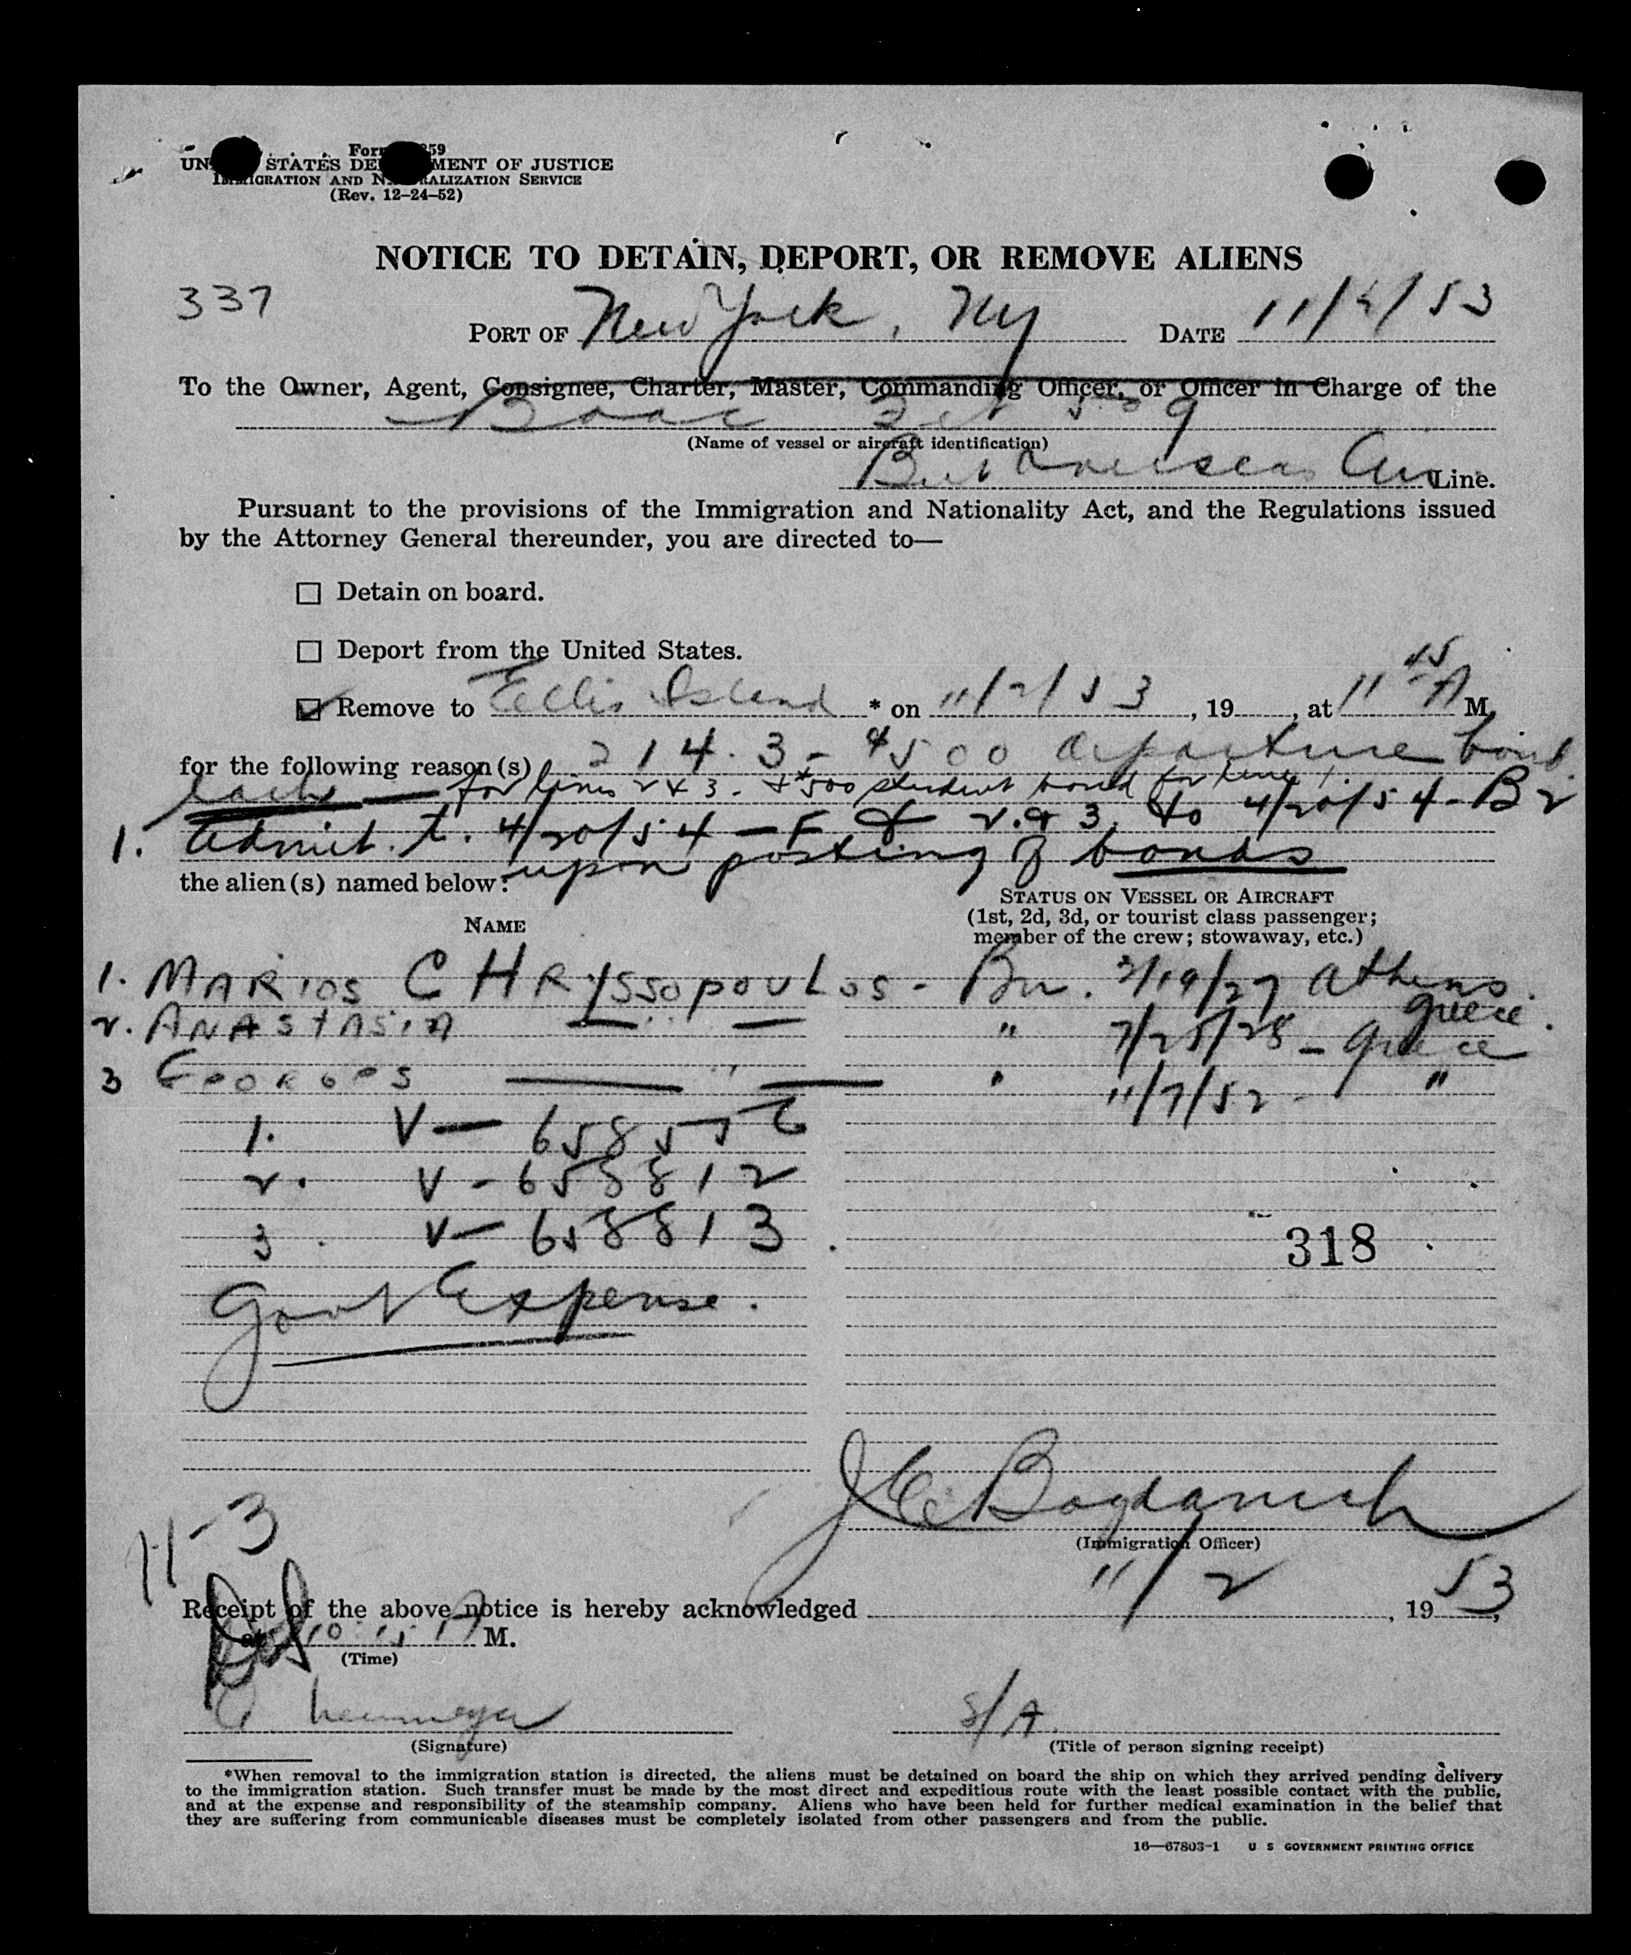 Form 259
UNITED STATES DEPARTMENT OF JUSTICE
IMMIGRATION AND NATURALIZATION SERVICE
(Rev. 12-24-52)
NOTICE TO DETAIN, DEPORT, OR REMOVE ALIENS
337
PORT OF New York, NY DATE 11/2/53
To the Owner, Agent, Consignee, Charter, Master, Commanding Officer, or Officer in Charge of the
Boac 509
(Name of vessel or aircraft identification)
Brit Overseas Air Line.
Pursuant to the provisions of the Immigration and Nationality Act, and the Regulations issued
by the Attorney General thereunder, you are directed to—
☐ Detain on board.
☐ Deport from the United States.
☑ Remove to Ellis Island * on 11/2/53, 19, at 11 45 A M.
for the following reason(s) 214.3 - $500 departure bond
each — for lines 2 & 3 - & $500 student bond for line 1.
1. Admit. t. 4/20/54 — F & 2. & 3. to 4/20/54 - B2
upon posting of bonds
the alien(s) named below:
NAME
STATUS ON VESSEL OR AIRCRAFT
(1st, 2d, 3d, or tourist class passenger;
member of the crew; stowaway, etc.)
1. MARIOS CHRYSSOPOULOS - Bn. 3/19/27 Athens
Greece.
2. ANASTASIA — " — " 7/25/28 - Greece
3 GEORGES — " — " 11/7/52 - "
1. V — 658556
2. V - 658812
3. V — 658813
318
Govt Expense.
J C Bogdanich
(Immigration Officer)
11-3
Receipt of the above notice is hereby acknowledged 11/2, 1953,
at 10:15 A M.
(Time)
S/A
(Signature)
(Title of person signing receipt)
*When removal to the immigration station is directed, the aliens must be detained on board the ship on which they arrived pending delivery
to the immigration station. Such transfer must be made by the most direct and expeditious route with the least possible contact with the public,
and at the expense and responsibility of the steamship company. Aliens who have been held for further medical examination in the belief that
they are suffering from communicable diseases must be completely isolated from other passengers and from the public.
16—67803-1 U S GOVERNMENT PRINTING OFFICE